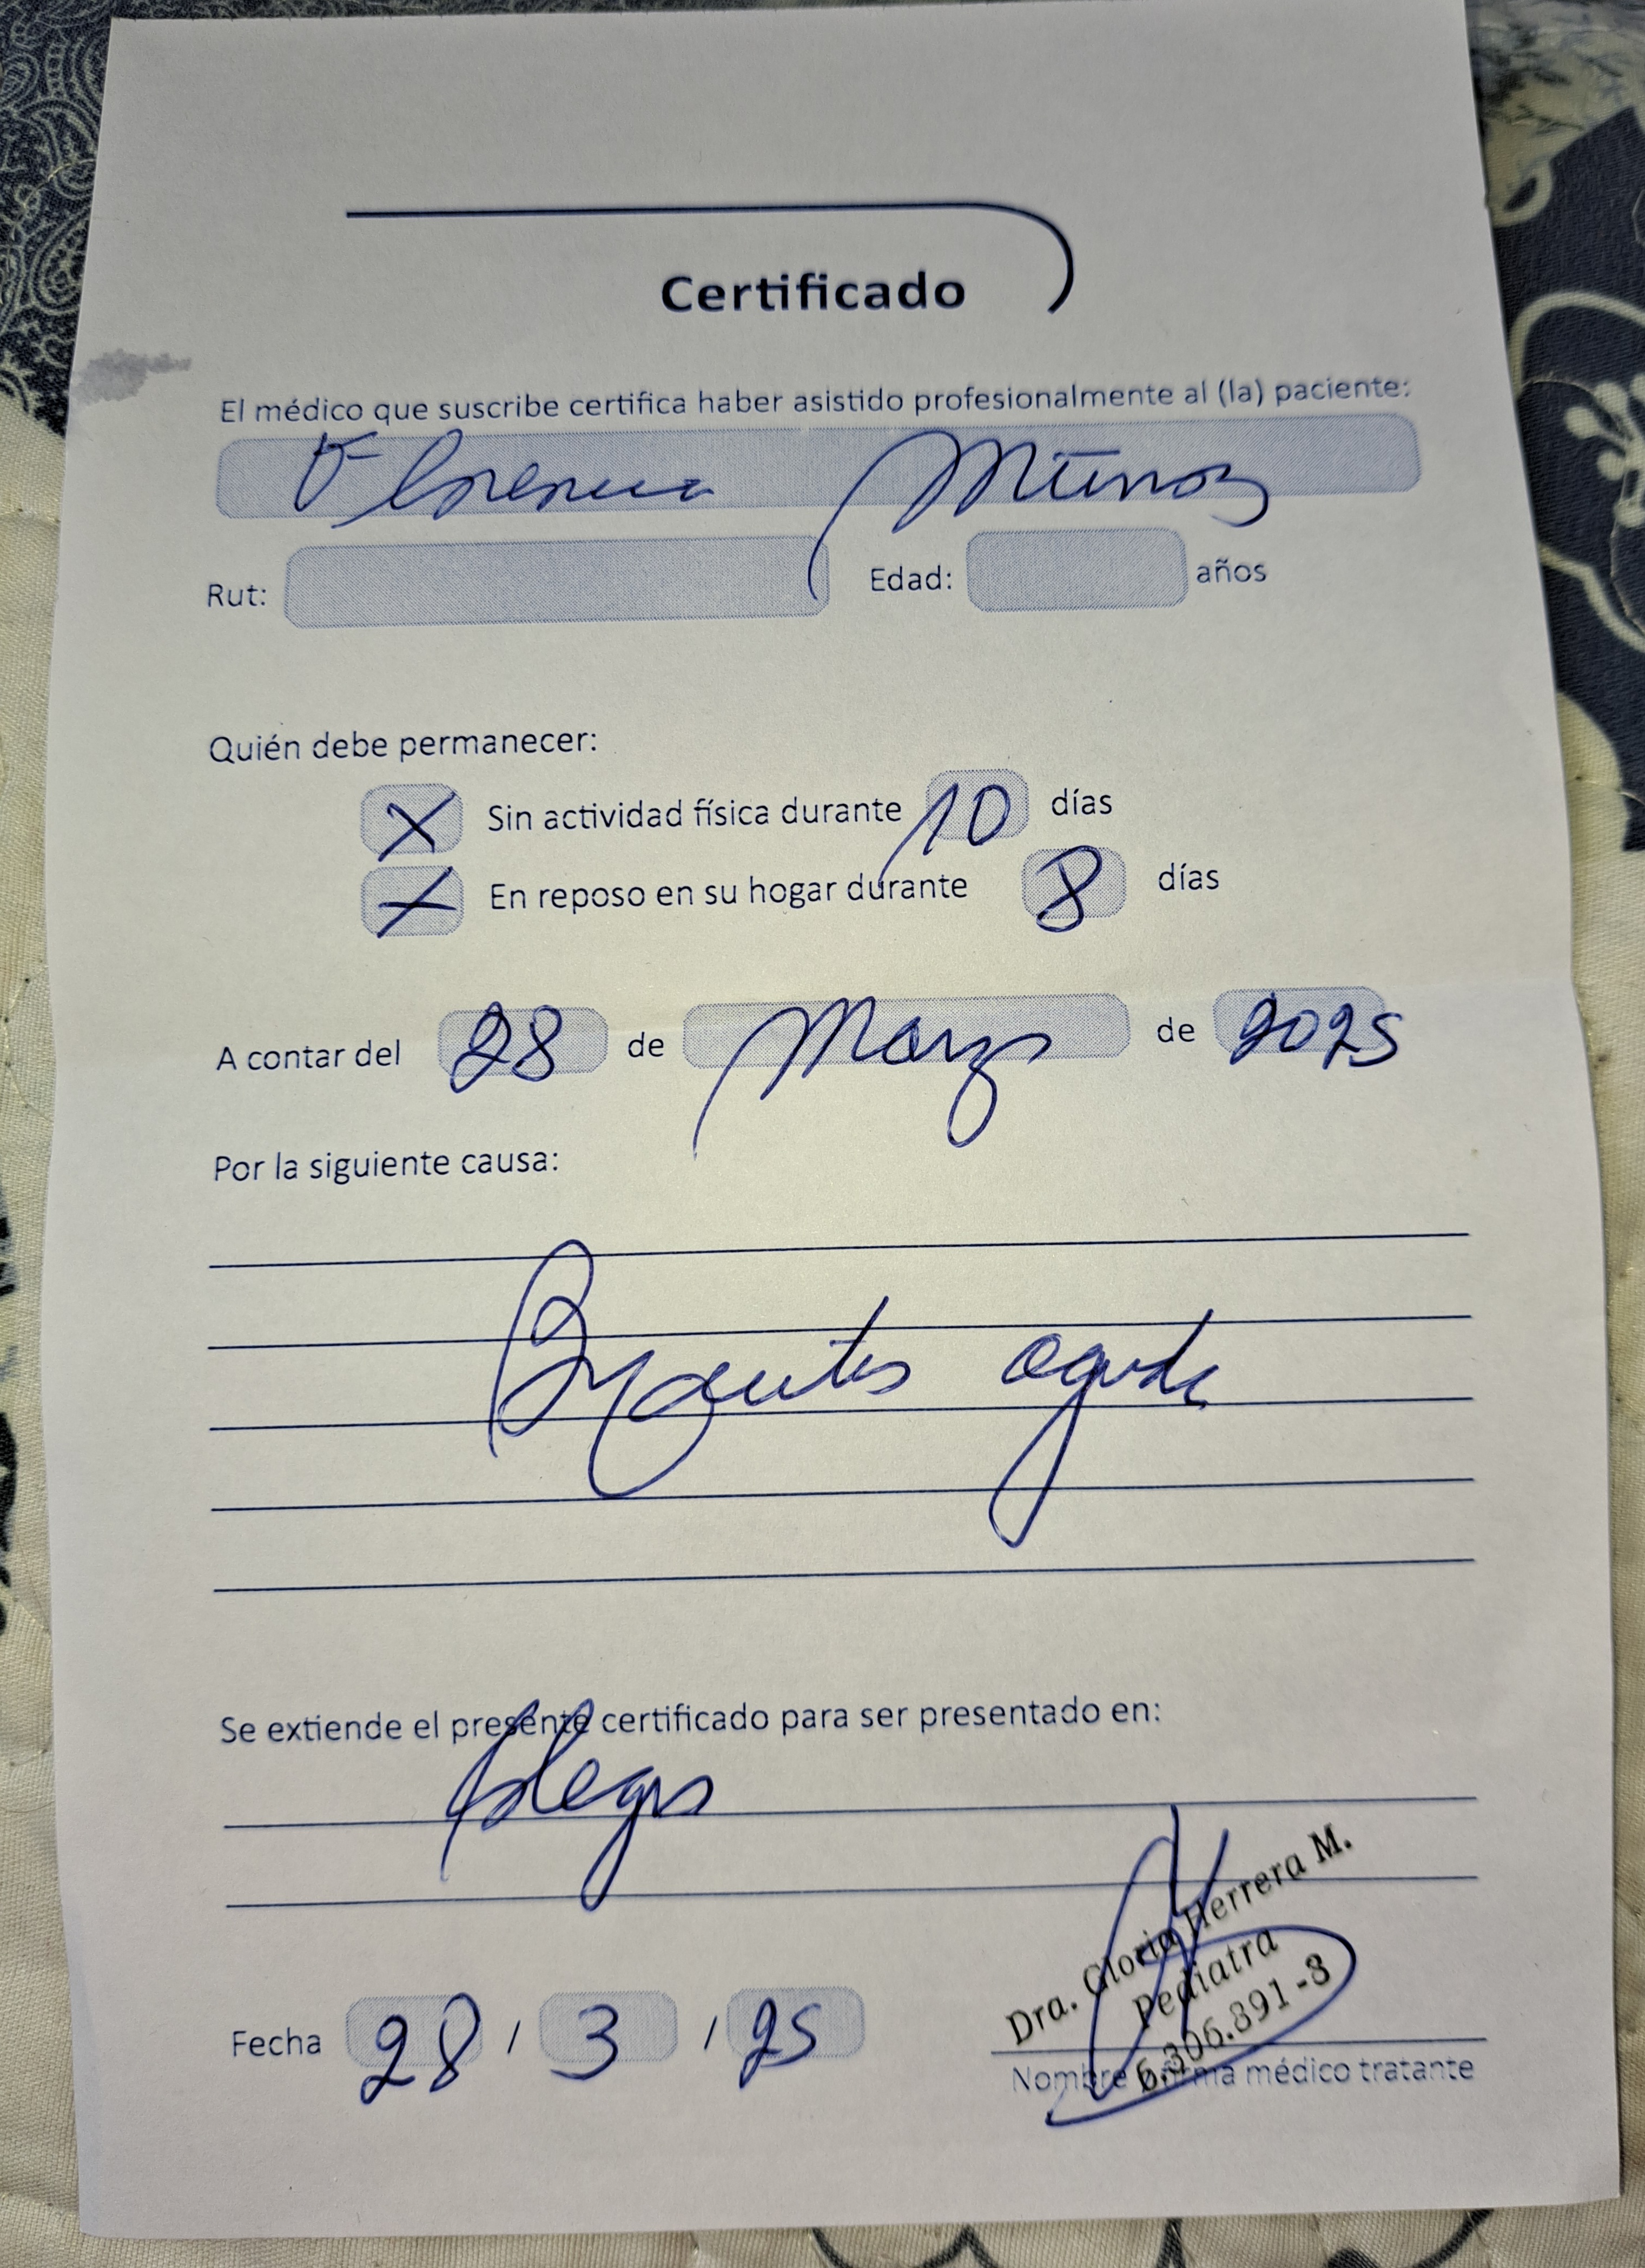 Certificado
El médico que suscribe certifica haber asistido profesionalmente al (la) paciente:
Florencia Muñoz
Rut: Edad: años
Quién debe permanecer:
X Sin actividad física durante 10 días
X En reposo en su hogar durante 8 días
A contar del 28 de Marzo de 2025
Por la siguiente causa:
aguda
Se extiende el presente certificado para ser presentado en:
Colegio
Dra. Gloria Herrera M.
Pediatra
6.306.891-8
Fecha 28 / 3 / 25
Nombre y firma médico tratante